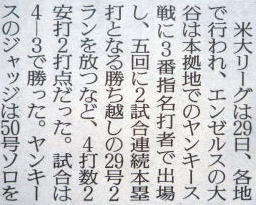 米大リーグは29日、各地
で行われ、エンゼルスの大
谷は本拠地でのヤンキース
戦に3番指名打者で出場
し、五回に2試合連続本塁
打となる勝ち越しの29号2
ランを放つなど、4打数2
安打2打点だった。試合は
4―3で勝った。ヤンキー
スのジャッジは50号ソロを